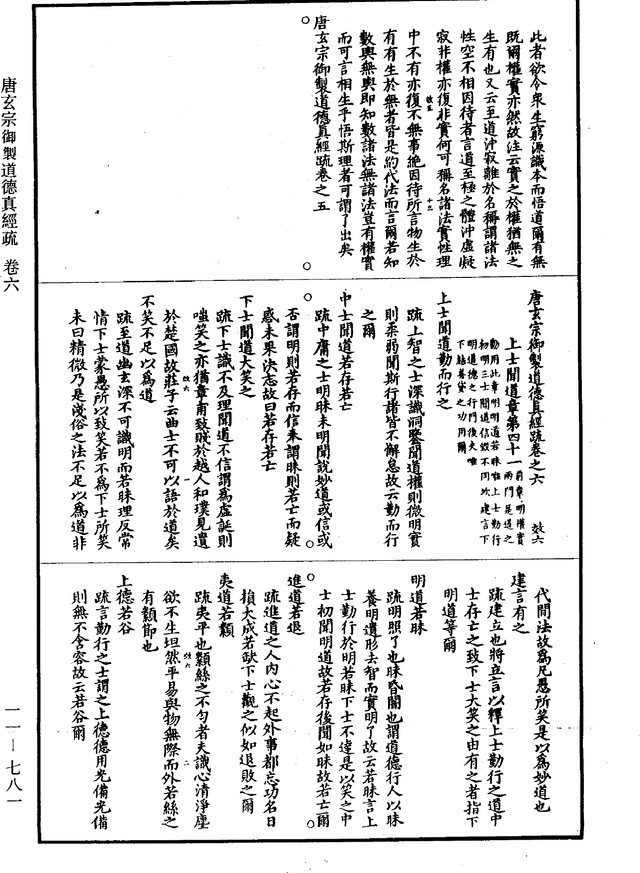 唐玄宗御製道德真經疏 卷六
一一—七八一
此者欲令衆生窮源識本而悟道爾有無
既爾權實亦然故注云實之於權猶無之
生有也又云至道沖寂離於名稱謂諸法
性空不相因待者言道至極之體沖虛凝
寂非權亦復非實何可稱名諸法實性理
中不有亦復不無事絶因待所言物生於
有有生於無者皆是約代法而言爾若知
數輿無輿即知數諸法無諸法豈有權實
而可言相生乎悟斯理者可謂了出矣
唐玄宗御製道德真經疏卷之五
效五
十三
唐玄宗御製道德真經疏卷之六
效六
上士聞道章第四十一
前章明權實
兩門是道之
動用此章明明道若昧唯上士勤行
初明三士聞道信毁不同次建言下
明道德之行門後夫唯
下結善貸之功用爾
上士聞道勤而行之
疏上智之士深識洞鑒聞道權則微明實
則柔弱聞斯行諸皆不懈怠故云勤而行
之爾
中士聞道若存若亡
疏中庸之士明昧未明聞說妙道或信或
否謂明則若存而信奉謂昧則若亡而疑
惑未果決志故曰若存若亡
下士聞道大笑之
疏下士識不及理聞道不信謂爲虛誕則
嗤笑之亦猶章甫致賤於越人和璞見遺
於楚國故莊子云曲士不可以語於道矣
不笑不足以爲道
疏至道幽玄深不可識明而若昧理反常
情下士蒙愚所以致笑若不爲下士所笑
未曰精微乃是淺俗之法不足以爲道非
效六
一
代間法故爲凡愚所笑是以爲妙道也
建言有之
疏建立也將立言以釋上士勤行之道中
士存亡之致下士大笑之由有之者指下
明道等爾
明道若昧
疏明照了也昧昏闇也謂道德行人以昧
養明遺形去智而實明了故云若昧言上
士勤行於明若昧下士不達是以笑之中
士初聞明道故若存後聞如昧故若亡爾
進道若退
疏進道之人内心不起外事都忘功名日
損大成若缺下士觀之似如退敗之爾
夷道若纇
疏夷平也纇絲之不勻者夫識心清淨塵
欲不生坦然平易與物無際而外若絲之
有纇節也
上德若谷
疏言勤行之士謂之上德德用光備光備
則無不含容故云若谷爾
效六
二